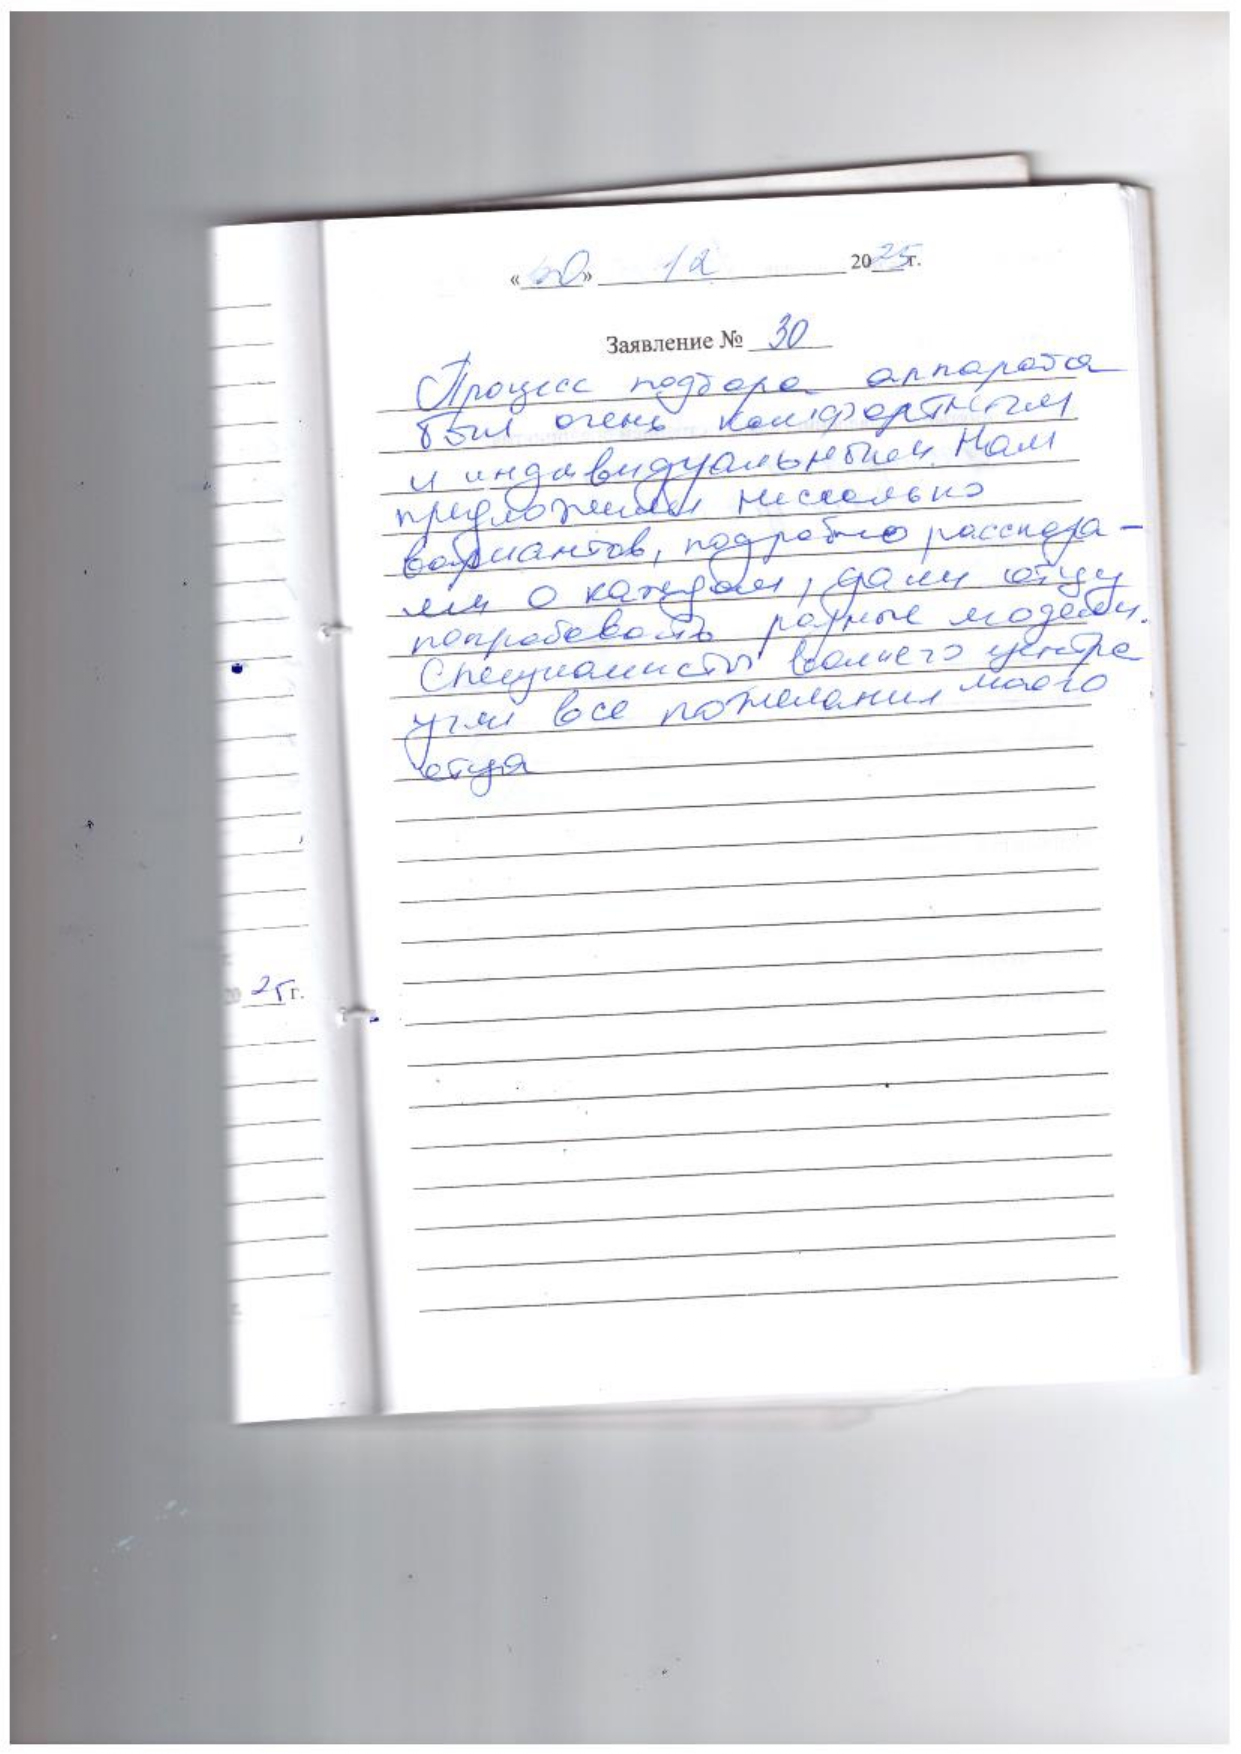 « » 12 2025г.
Заявление № 30
Процесс подбора аппарата
был очень комфортным
и индивидуальным. Нам
предложили несколько
вариантов, подробно рассказа-
ли о каждом, дали отцу
попробовать разные модели.
Специалисты вашего центра
учли все пожелания моего
отца
2025г.